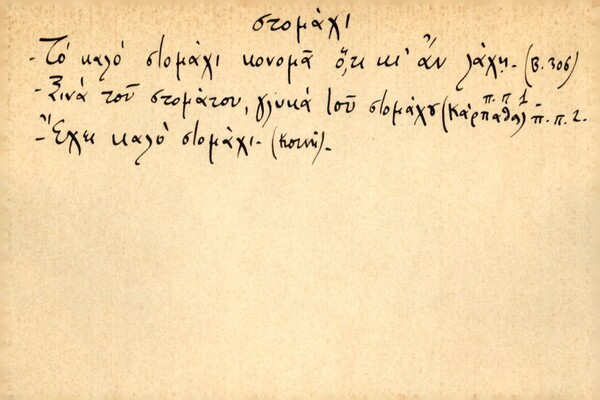 στομάχι
- Τό καλό στομάχι κονομᾶ ὅ,τι κι' ἄν λάχῃ. (Β. 306)
- Ξινά τοῦ στομάτου, γλυκά τοῦ στομάχου (Κάρπαθος) π.π 1. π.π. 2.
- Ἔχει καλό στομάχι. (Κοινή).